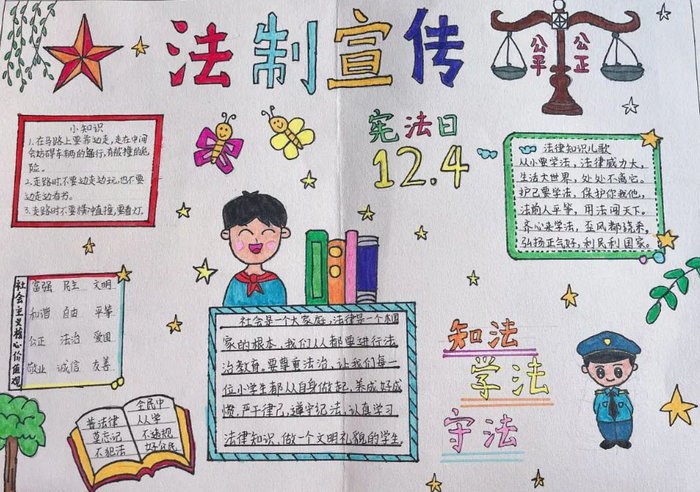 法制宣传
公平
公正
小知识
1.在马路上要靠边走,走在中间
会妨碍车辆的通行,有被撞的危
险。
2.走路时,不要边走边玩,也不要
边走边看书。
3.走路时不要横冲直撞,要看灯。
宪法日
12.4
法律知识儿歌
从小要学法,法律威力大,
生活大世界,处处不离它。
护己要学法,保护你我他,
法前人平等,用法闯天下。
齐心来学法,
弘扬正气好,利民利国家。
社会主义核心价值观
富强 民主 文明
和谐 自由 平等
公正 法治 爱国
敬业 诚信 友善
社会是一个大家庭,法律是一个国
家的根本,我们人人都要进行法
治教育。要尊重法治,让我们每一
位小学生都从自身做起,养成好成
惯,严于律己,遵守纪法,认真学习
法律知识,做一个文明礼貌的学生
知法
学法
守法
普法律
莫忘记
不犯法
全民中
人人学
不违规
好公民